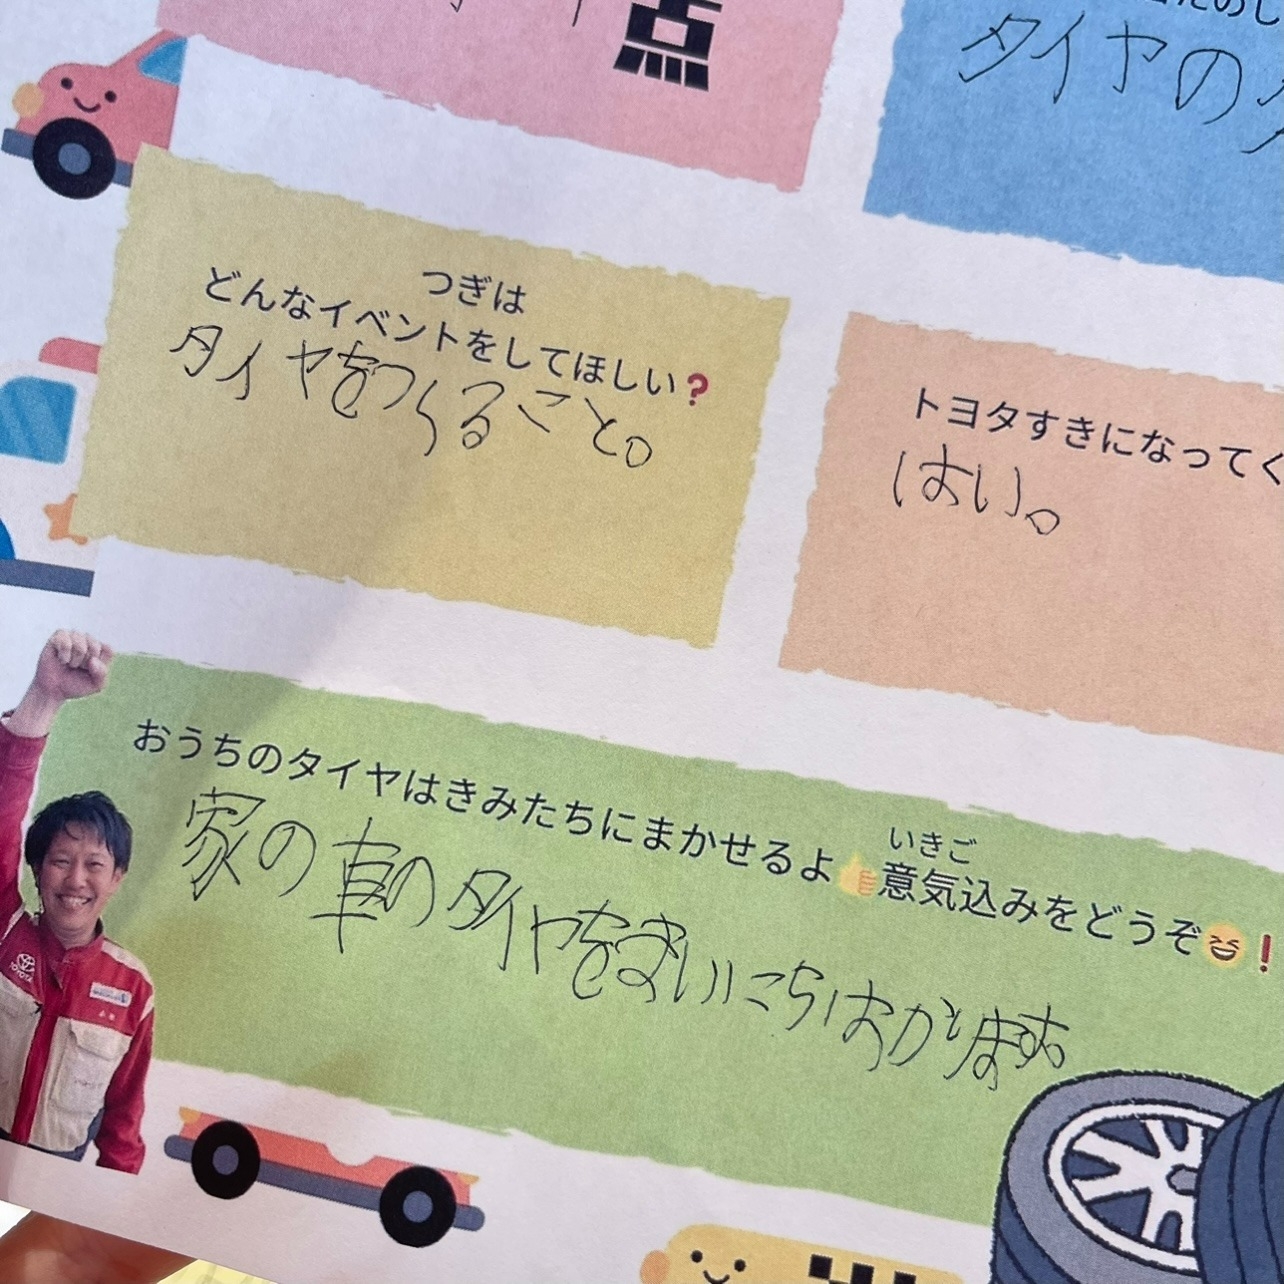 点
タイヤの
つぎは
どんなイベントをしてほしい?
タイヤをつくること。
トヨタすきになってく
はい。
おうちのタイヤはきみたちにまかせるよ👍意気込みをどうぞ😆!
いきご
家の車のタイヤをまいにちはかります
TOYOTA